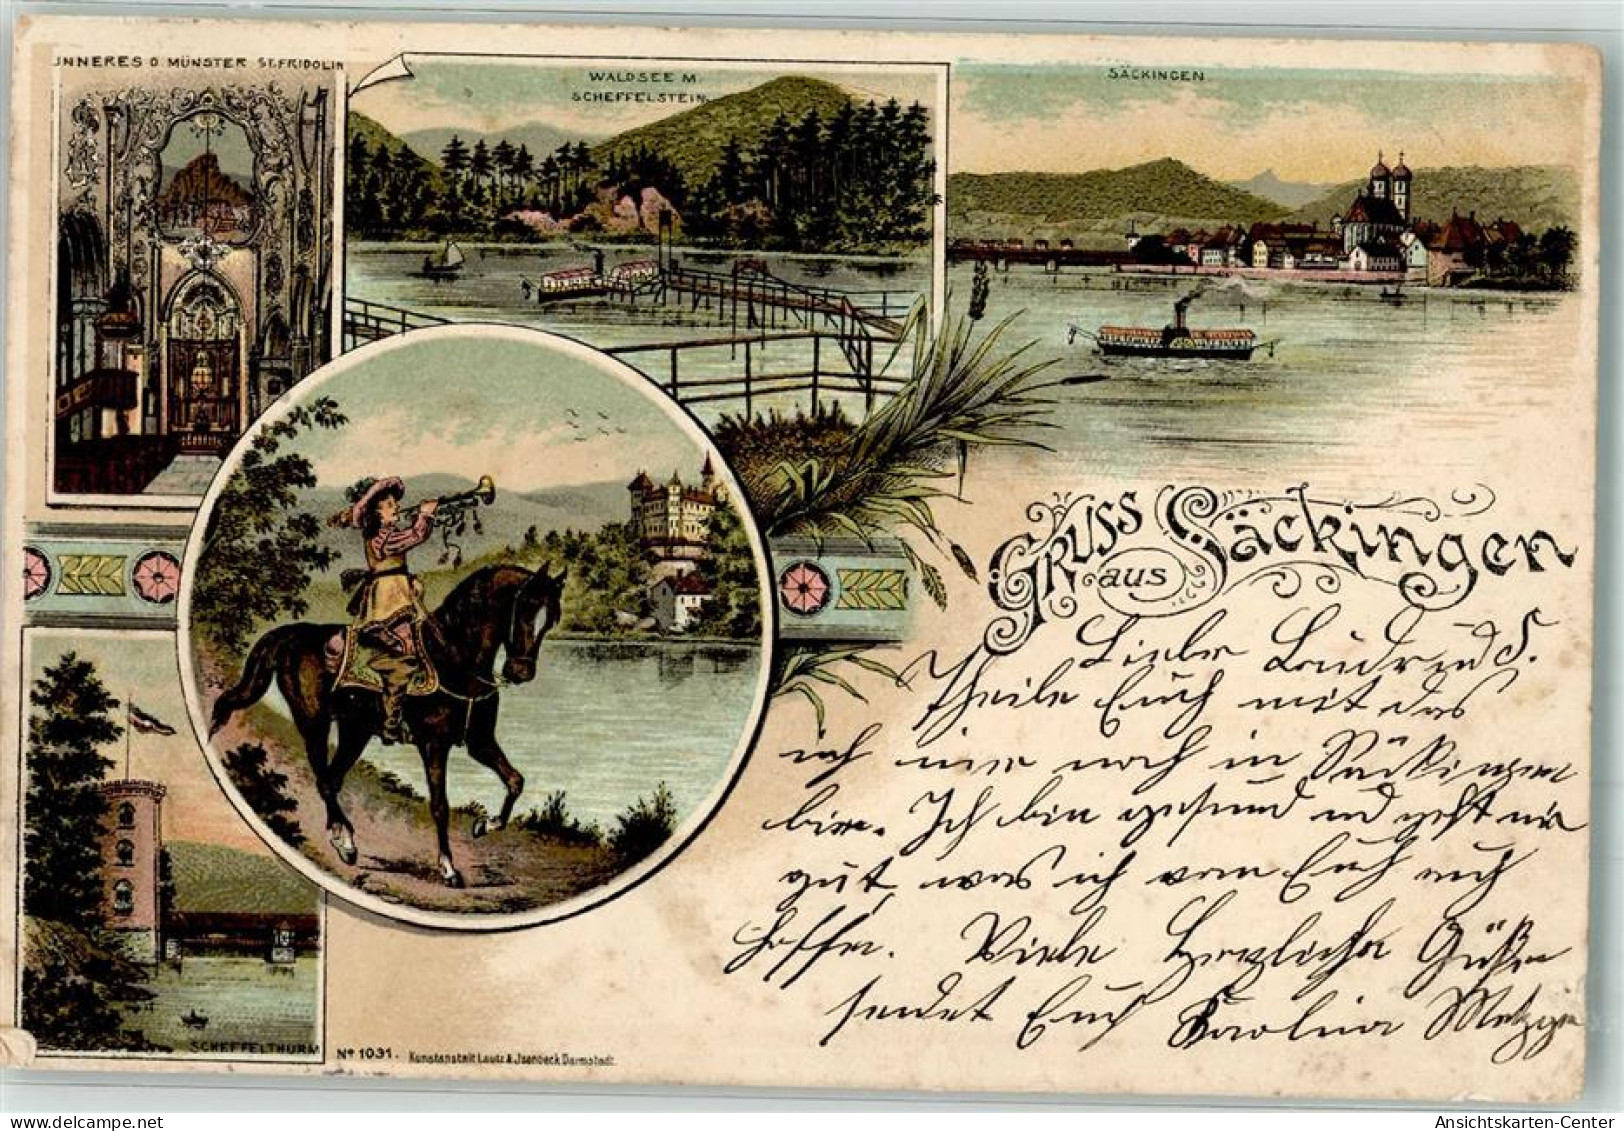 INNERES D. MÜNSTER ST. FRIDOLIN
WALDSEE M.
SCHEFFELSTEIN.
SÄCKINGEN
GRUSS
aus
Säckingen
Liebe
Theile Euch mit das
ich nur noch in Säckingen
bin. Ich bin gesund und geht mir
gut was ich von Euch auch
hoffe. Viele Herzliche Grüße
sendet Euch Karolina
SCHEFFELTHURM
Nº 1031. Kunstanstalt Lautz & Jsenbeck Darmstadt.
Ansichtskarten-Center